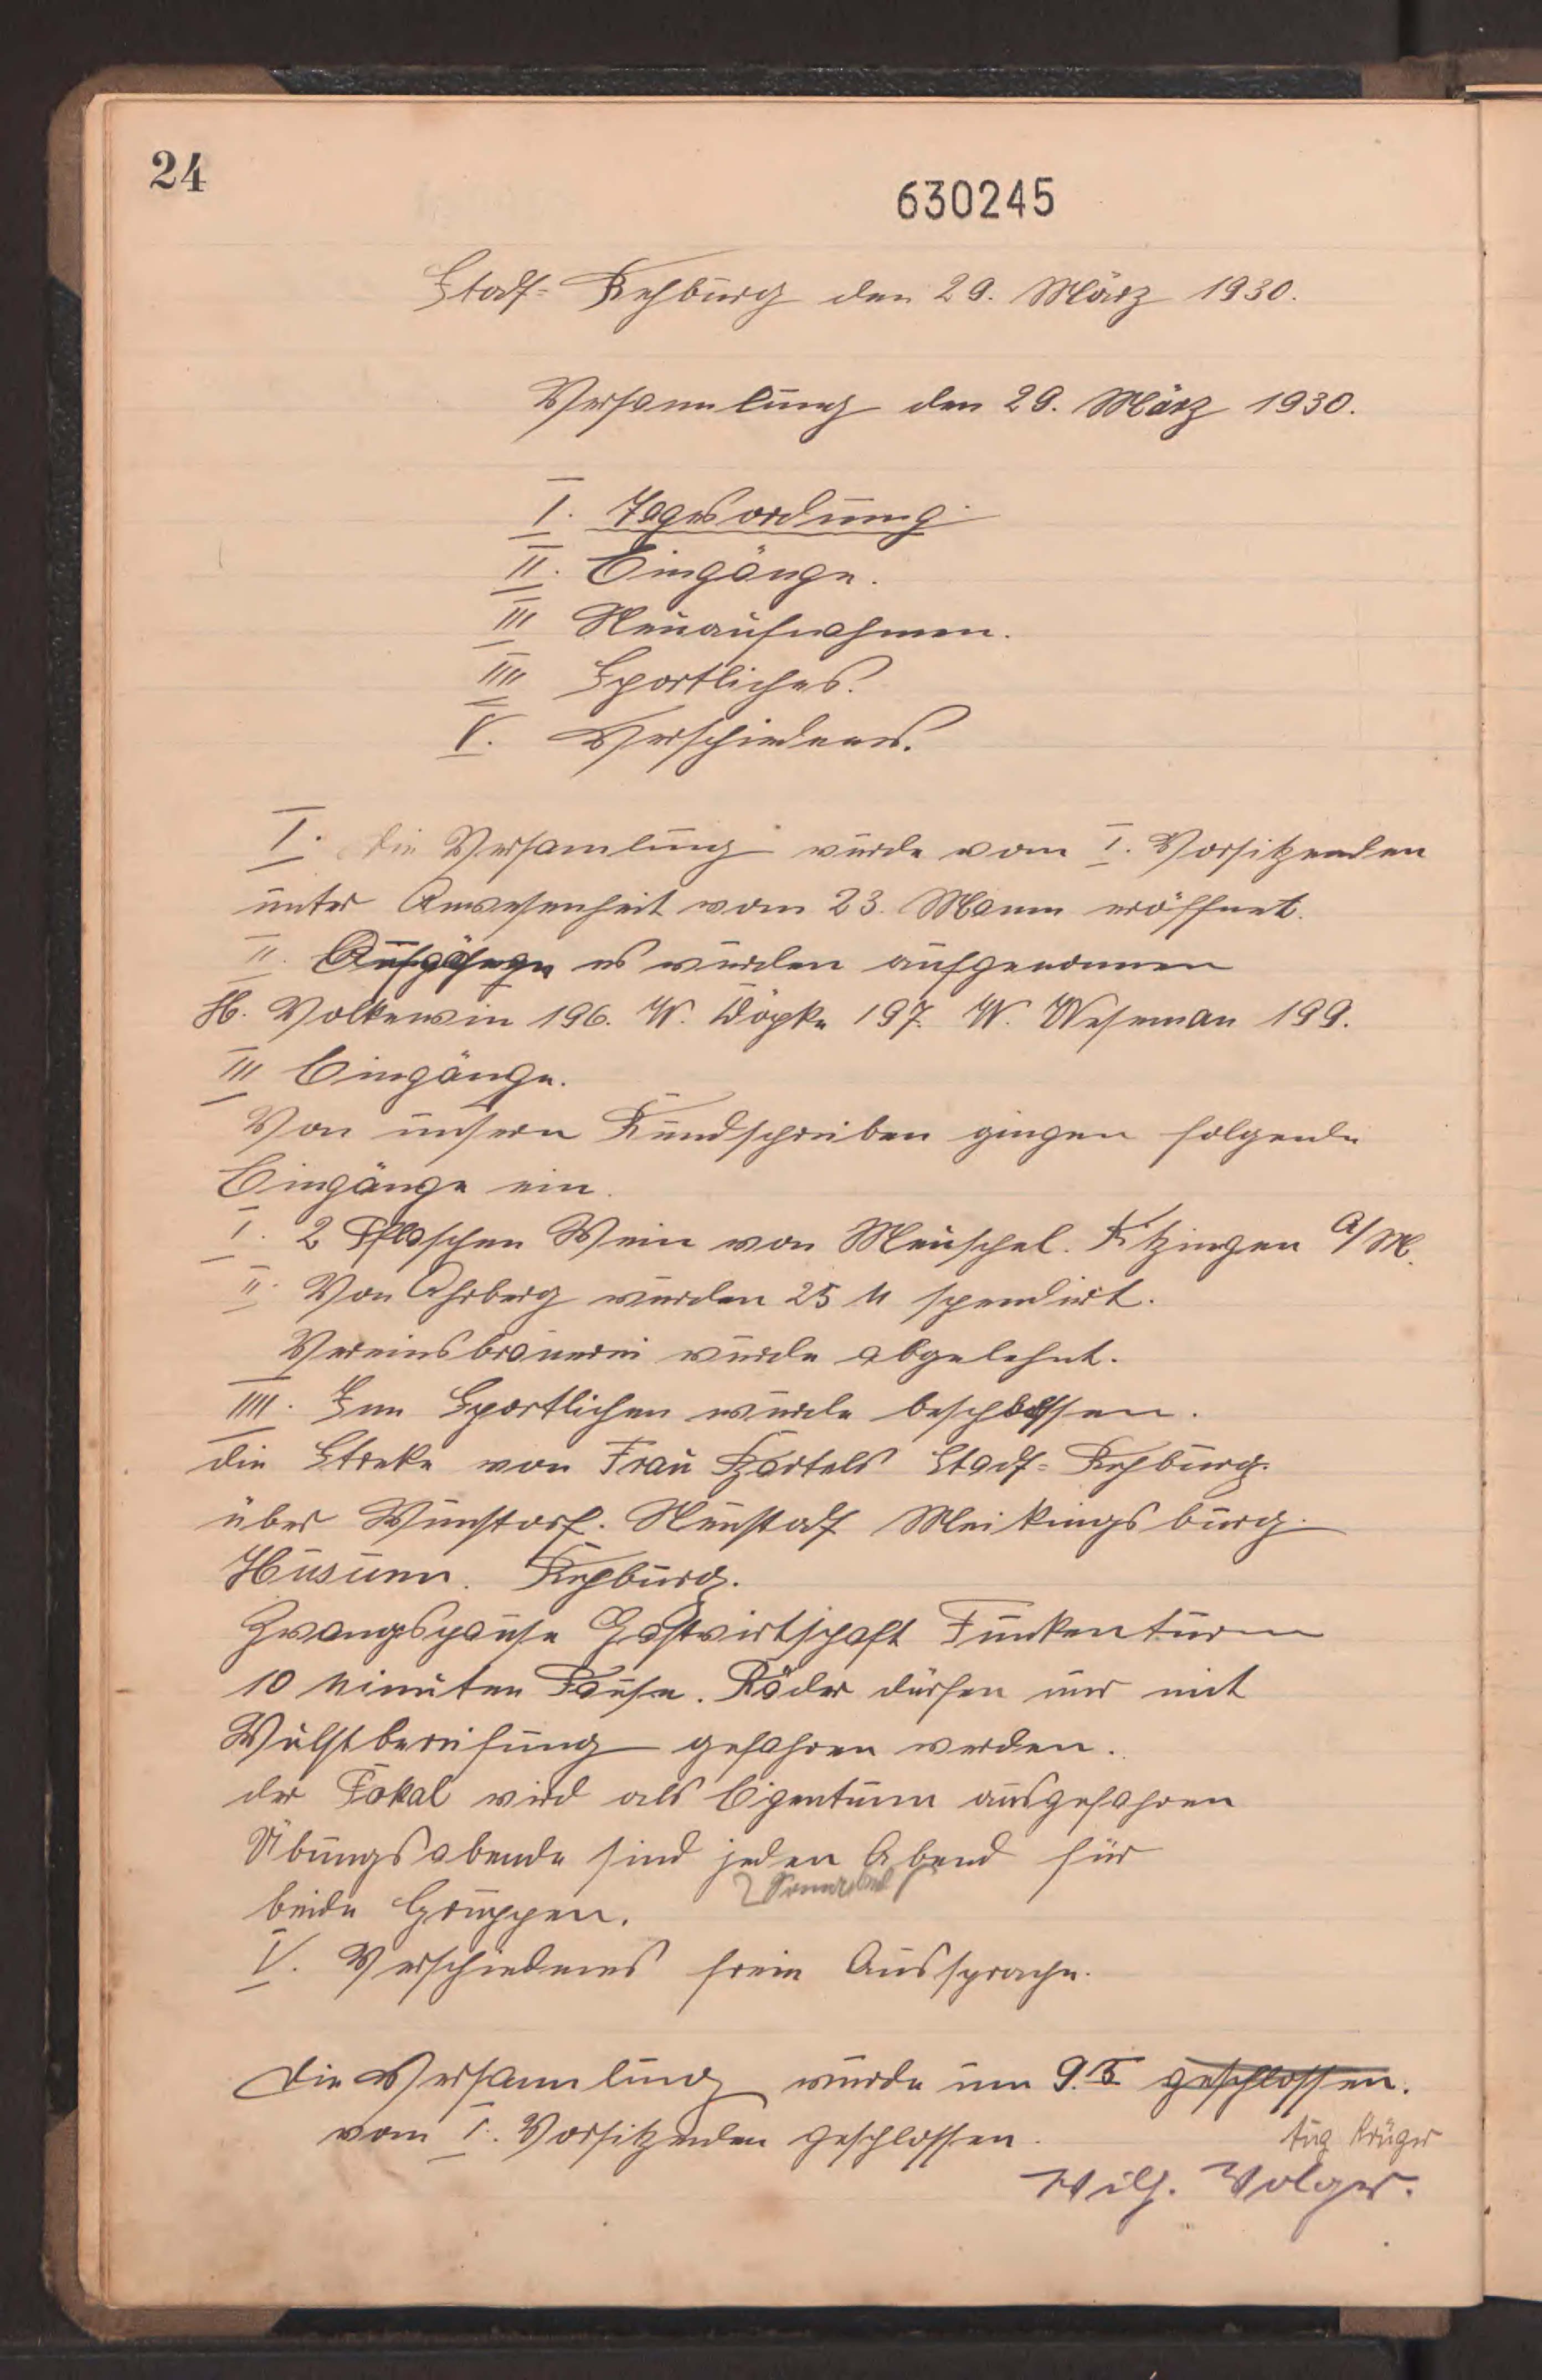 24
630245
Stadt-Rehburg den 29. März 1930.
Versammlung den 29. März 1930.
I. Tagesordnung.
II. Eingänge.
III Neuaufnahmen.
IIII Sportliches.
V. Verschiedenes.
I. die Versamlung wurde vom I. Vorsitzenden
unter Anwesenheit vom 23. Mann eröffnet.
II. es wurden aufgenommen
H. Volkewin 196. W. Döpke 197. W. Weseman 199.
III Eingänge.
Von unsern Rundschreiben gingen folgende
Eingänge ein.
I. 2 Flaschen Wein von Meuschel. Kitzingen a/M.
II. Von Ahrberg wurden 25 M spendirt.
Vereinsbrauerei wurde abgelehnt.
IIII. Im Sportlichen wurde beschlossen.
die Streke von Frau Bartels Stadt-Rehburg.
über Wunstorf. Neustadt Meikingsburg.
Husum. Rehburg.
Zwangspause Gastwirtschaft Funkenturm
10 Minuten Pause. Räder dürfen nur mit
Wulstbereifung gefahren werden.
der Pokal wird als Eigentum ausgefahren
Übungsabende sind jeden Abend für
beide Gruppen.
V. Verschiedenes freie Aussprache.
Die Versammlung wurde um 9.15 geschlossen.
vom I. Vorsitzenden geschlossen.
Aug Krüger
Wilh. Volger.